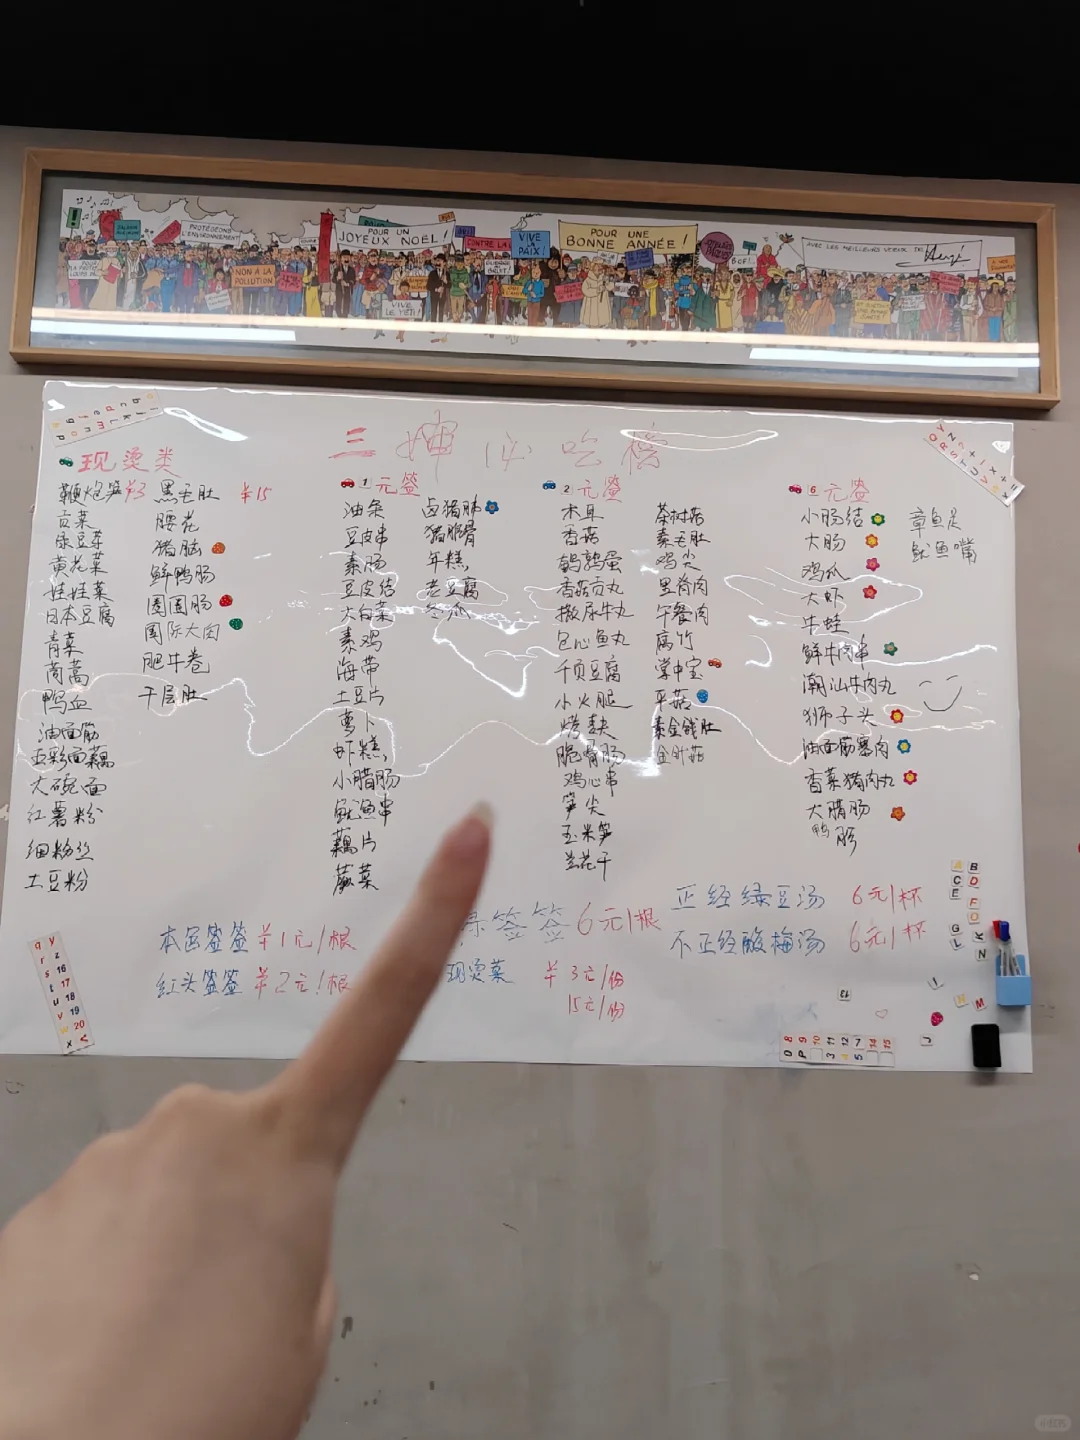 POUR UN
JOYEUX NOËL !
VIVE LA PAIX !
POUR UNE
BONNE ANNÉE !
AVEC LES MEILLEURS VOEUX DE
PROTÉGEONS L'ENVIRONNEMENT
NON À LA POLLUTION
VIVE LE YÉTI !
BOF!
三婶必吃榜
现烫类
鞭炮笋 ¥3
贡菜
绿豆芽
黄花菜
娃娃菜
日本豆腐
青菜
茼蒿
鸭血
油面筋
五彩面藕
大碗面
红薯粉
细粉丝
土豆粉
黑毛肚 ¥15
腰花
猪脑
鲜鸭肠
圆圆肠
国际大肉
肥牛卷
千层肚
1元签
油条
豆皮串
素肠
豆皮结
大白菜
素鸡
海带
土豆片
萝卜
虾糕
小腊肠
鱿鱼串
藕片
蕨菜
卤猪肺
猪脆骨
年糕
老豆腐
冬瓜
2元签
木耳
香菇
鹌鹑蛋
香菇贡丸
撒尿牛丸
包心鱼丸
千页豆腐
小火腿
烤麸
脆骨肠
鸡心串
笋尖
玉米笋
兰花干
茶树菇
素毛肚
鸡尖
里脊肉
午餐肉
腐竹
掌中宝
平菇
素金钱肚
金针菇
6元签
小肠结
大肠
鸡爪
大虾
牛蛙
鲜牛肉串
潮汕牛肉丸
狮子头
油面筋塞肉
香菜猪肉丸
大腊肠
鸭肠
章鱼足
鱿鱼嘴
本色签签 ¥1元/根
红头签签 ¥2元/根
绿签签 6元/根
现烫菜 ¥3元/份
15元/份
正经绿豆汤 6元/杯
不正经酸梅汤 6元/杯